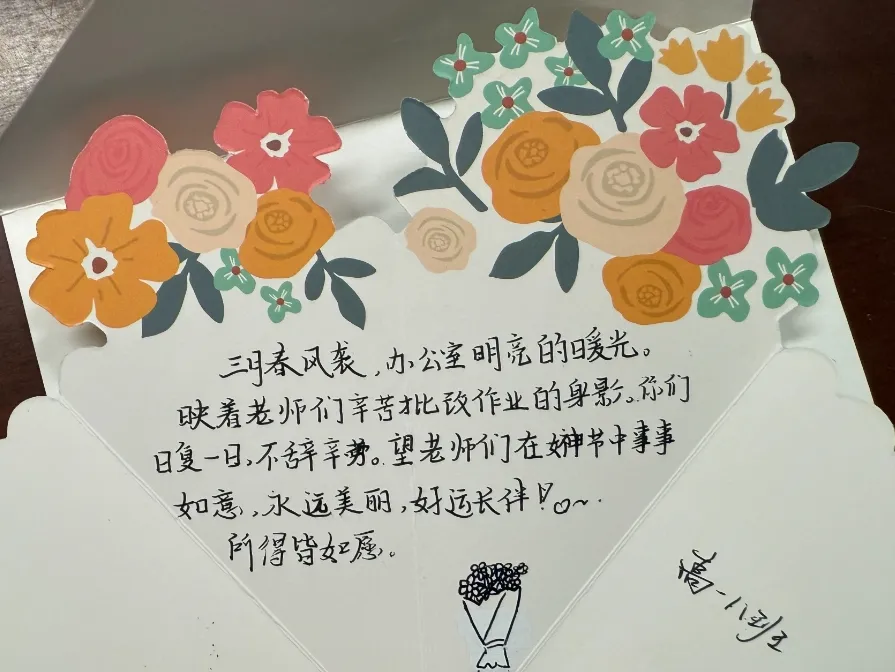 三月春风袭,办公室明亮的暖光。
映着老师们辛苦批改作业的身影。你们
日复一日,不辞辛劳。望老师们在女神节中事事
如意,永远美丽,好运长伴!
所得皆如愿。
高一八班